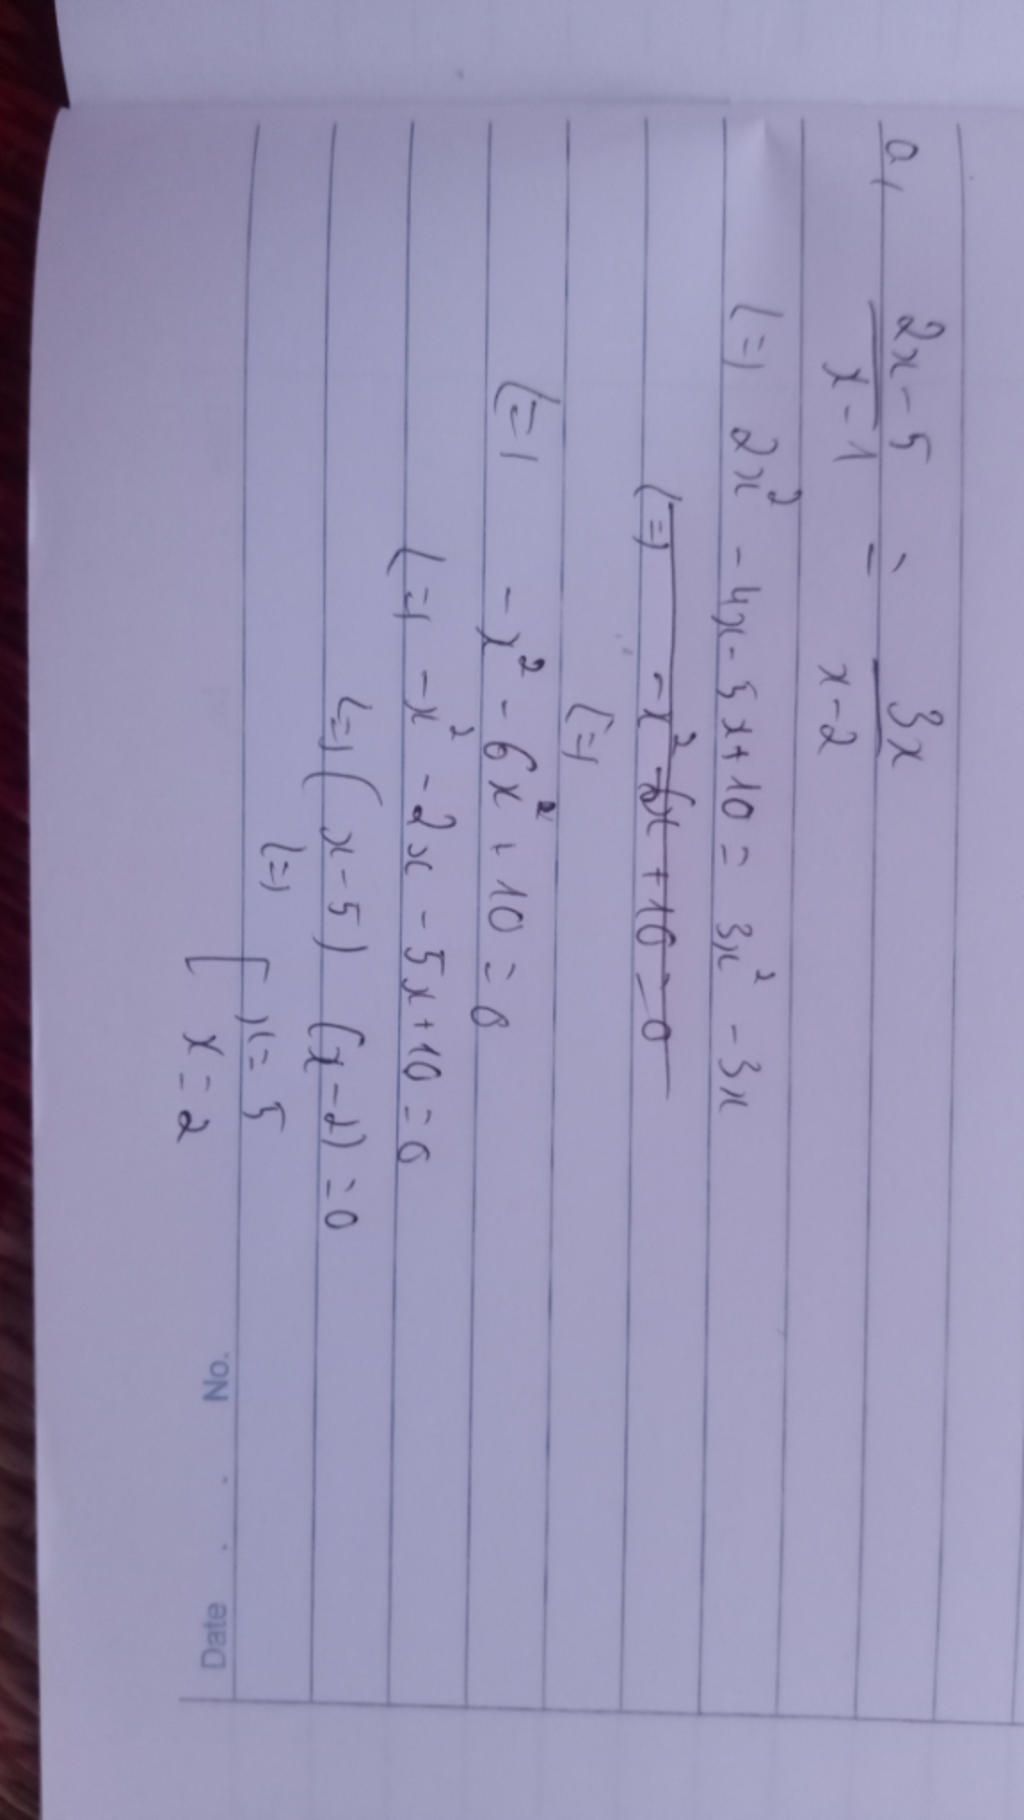 a, 2x-5 / x-1 = 3x / x-2
(=) 2x² - 4x - 5x + 10 = 3x² - 3x
(=) -x² - 6x + 10 = 0
(=)
(=) -x² - 6x² + 10 = 0
(=) -x² - 2x - 5x + 10 = 0
(=) (x-5) (x-2) = 0
(=) [ x = 5
x = 2
Date . . No.